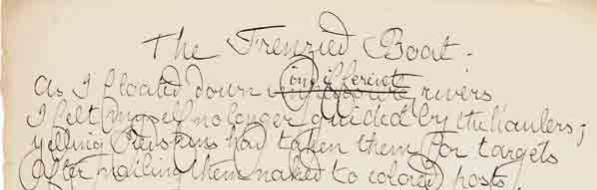 The Frenzied Boat.
indifferent
As I floated down rivers
I felt myself no longer guided by the haulers;
yelling Redskins had taken them for targets
After nailing them naked to colored posts,